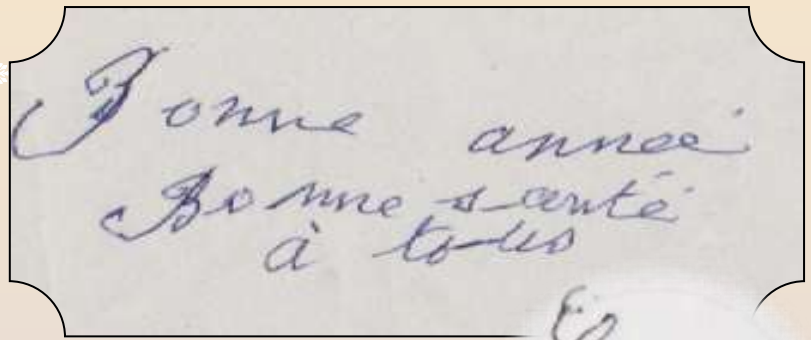 Bonne année
Bonne santé
à tous